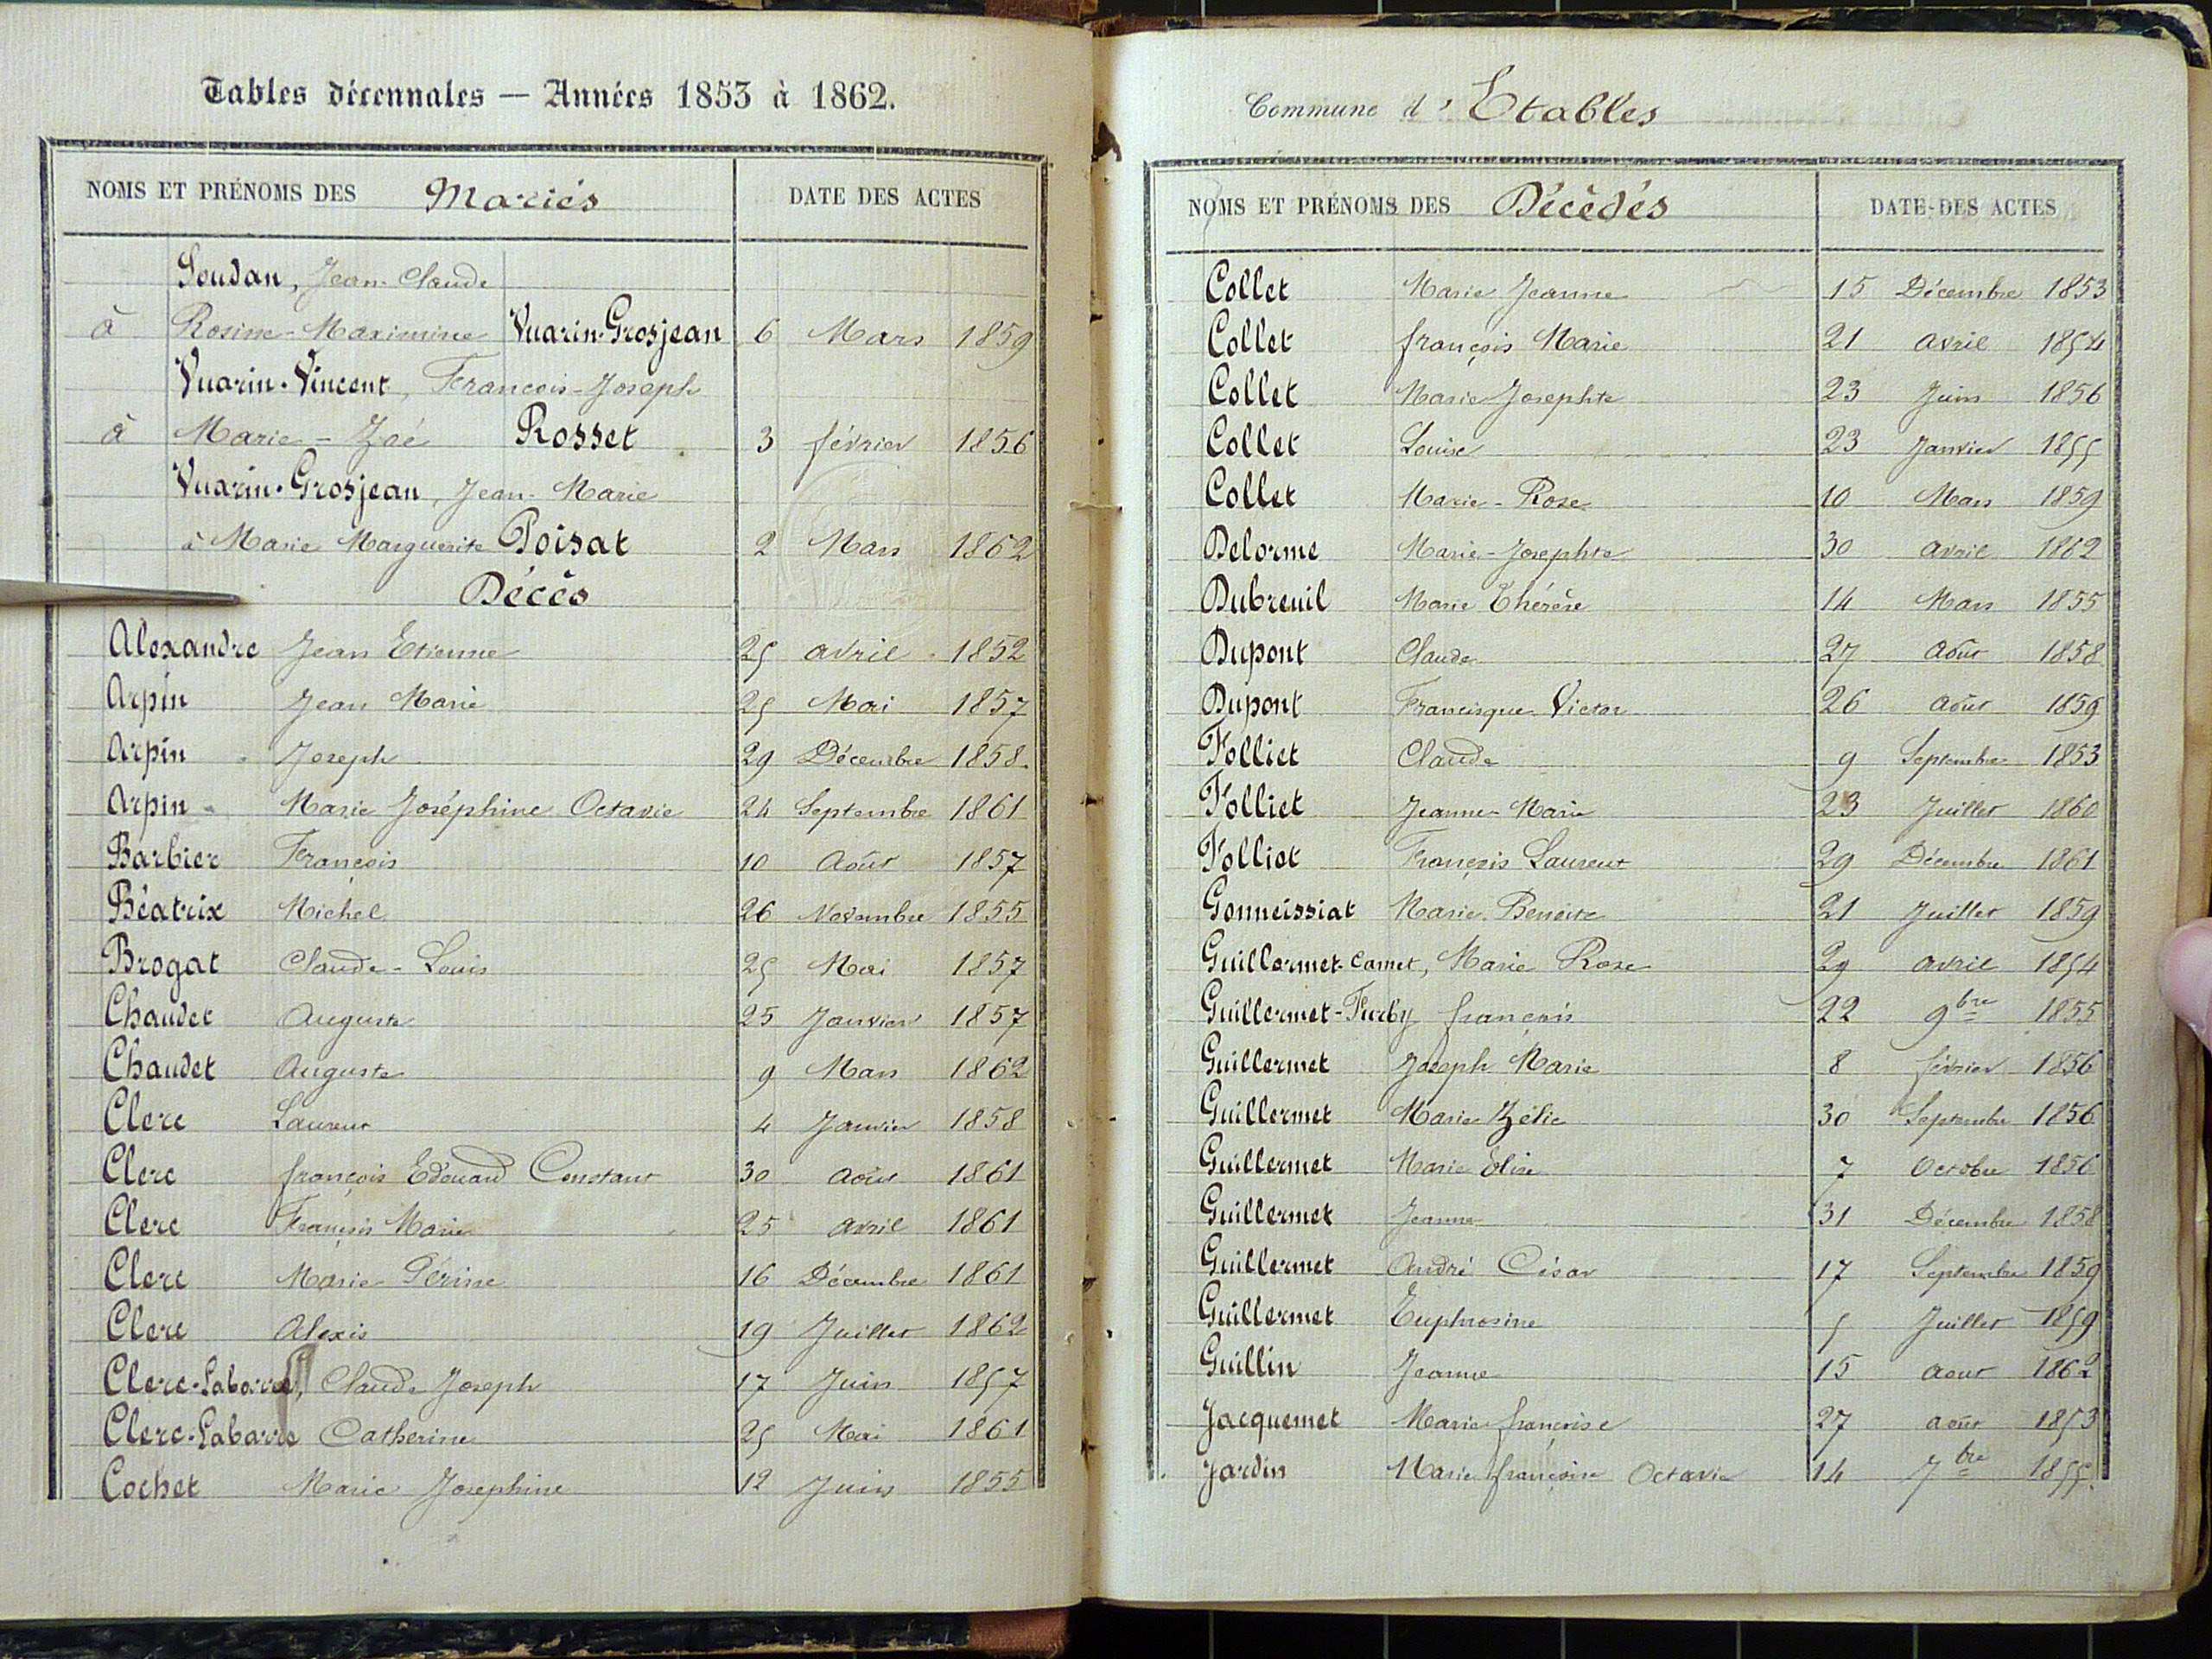 Tables décennales — Années 1853 à 1862.
NOMS ET PRÉNOMS DES Mariés DATE DES ACTES
Soudan, Jean-Claude
à Rosine-Maximine Vuarin-Grosjean 6 Mars 1859
Vuarin-Vincent, François-Joseph
à Marie-Zoé Rosset 3 février 1856
Vuarin-Grosjean, Jean-Marie
à Marie Marguerite Poisat 2 Mars 1862
Décès
Alexandre Jean Etienne 25 avril 1852
Arpin Jean Marie 25 Mai 1857
Arpin Joseph 29 Décembre 1858
Arpin Marie Joséphine Octavie 24 Septembre 1861
Barbier François 10 Août 1857
Béatrix Michel 26 Novembre 1855
Brogat Claude-Louis 25 Mai 1857
Chaudet Auguste 25 Janvier 1857
Chaudet Auguste 9 Mars 1862
Clerc Laurent 4 Janvier 1858
Clerc françois Edouard Constant 30 août 1861
Clerc François Marie 25 avril 1861
Clerc Marie Périne 16 Décembre 1861
Clerc Alexis 19 Juillet 1862
Clerc-Labarre, Claude Joseph 17 Juin 1857
Clerc-Labarre Catherine 25 Mai 1861
Cochet Marie Josephine 12 Juin 1855
Commune d' Etables
NOMS ET PRÉNOMS DES Décédés DATE DES ACTES
Collet Marie Jeanne 15 Décembre 1853
Collet françois Marie 21 avril 1854
Collet Marie Josephte 23 Juin 1856
Collet Louise 23 Janvier 1855
Collet Marie-Rose 10 Mars 1859
Delorme Marie-Josephte 30 avril 1862
Dubreuil Marie Thérèse 14 Mars 1855
Dupont Claude 27 Août 1858
Dupont Francisque Victor 26 août 1859
Folliet Claude 9 Septembre 1853
Folliet Jeanne-Marie 23 Juillet 1860
Folliet François Laurent 29 Décembre 1861
Gonneissiat Marie Benoite 21 Juillet 1859
Guillermet-Camet, Marie Rose 29 avril 1854
Guillermet-Furby françois 22 9bre 1855
Guillermet Joseph Marie 8 février 1856
Guillermet Marie Zélie 30 Septembre 1856
Guillermet Marie Elise 7 Octobre 1856
Guillermet Jeanne 31 Décembre 1858
Guillermet André César 17 Septembre 1859
Guillermet Euphrosine 5 Juillet 1859
Guillin Jeanne 15 aout 1862
Jacquemet Marie françoise 27 août 1853
Jardin Marie françoise Octavie 14 7bre 1855